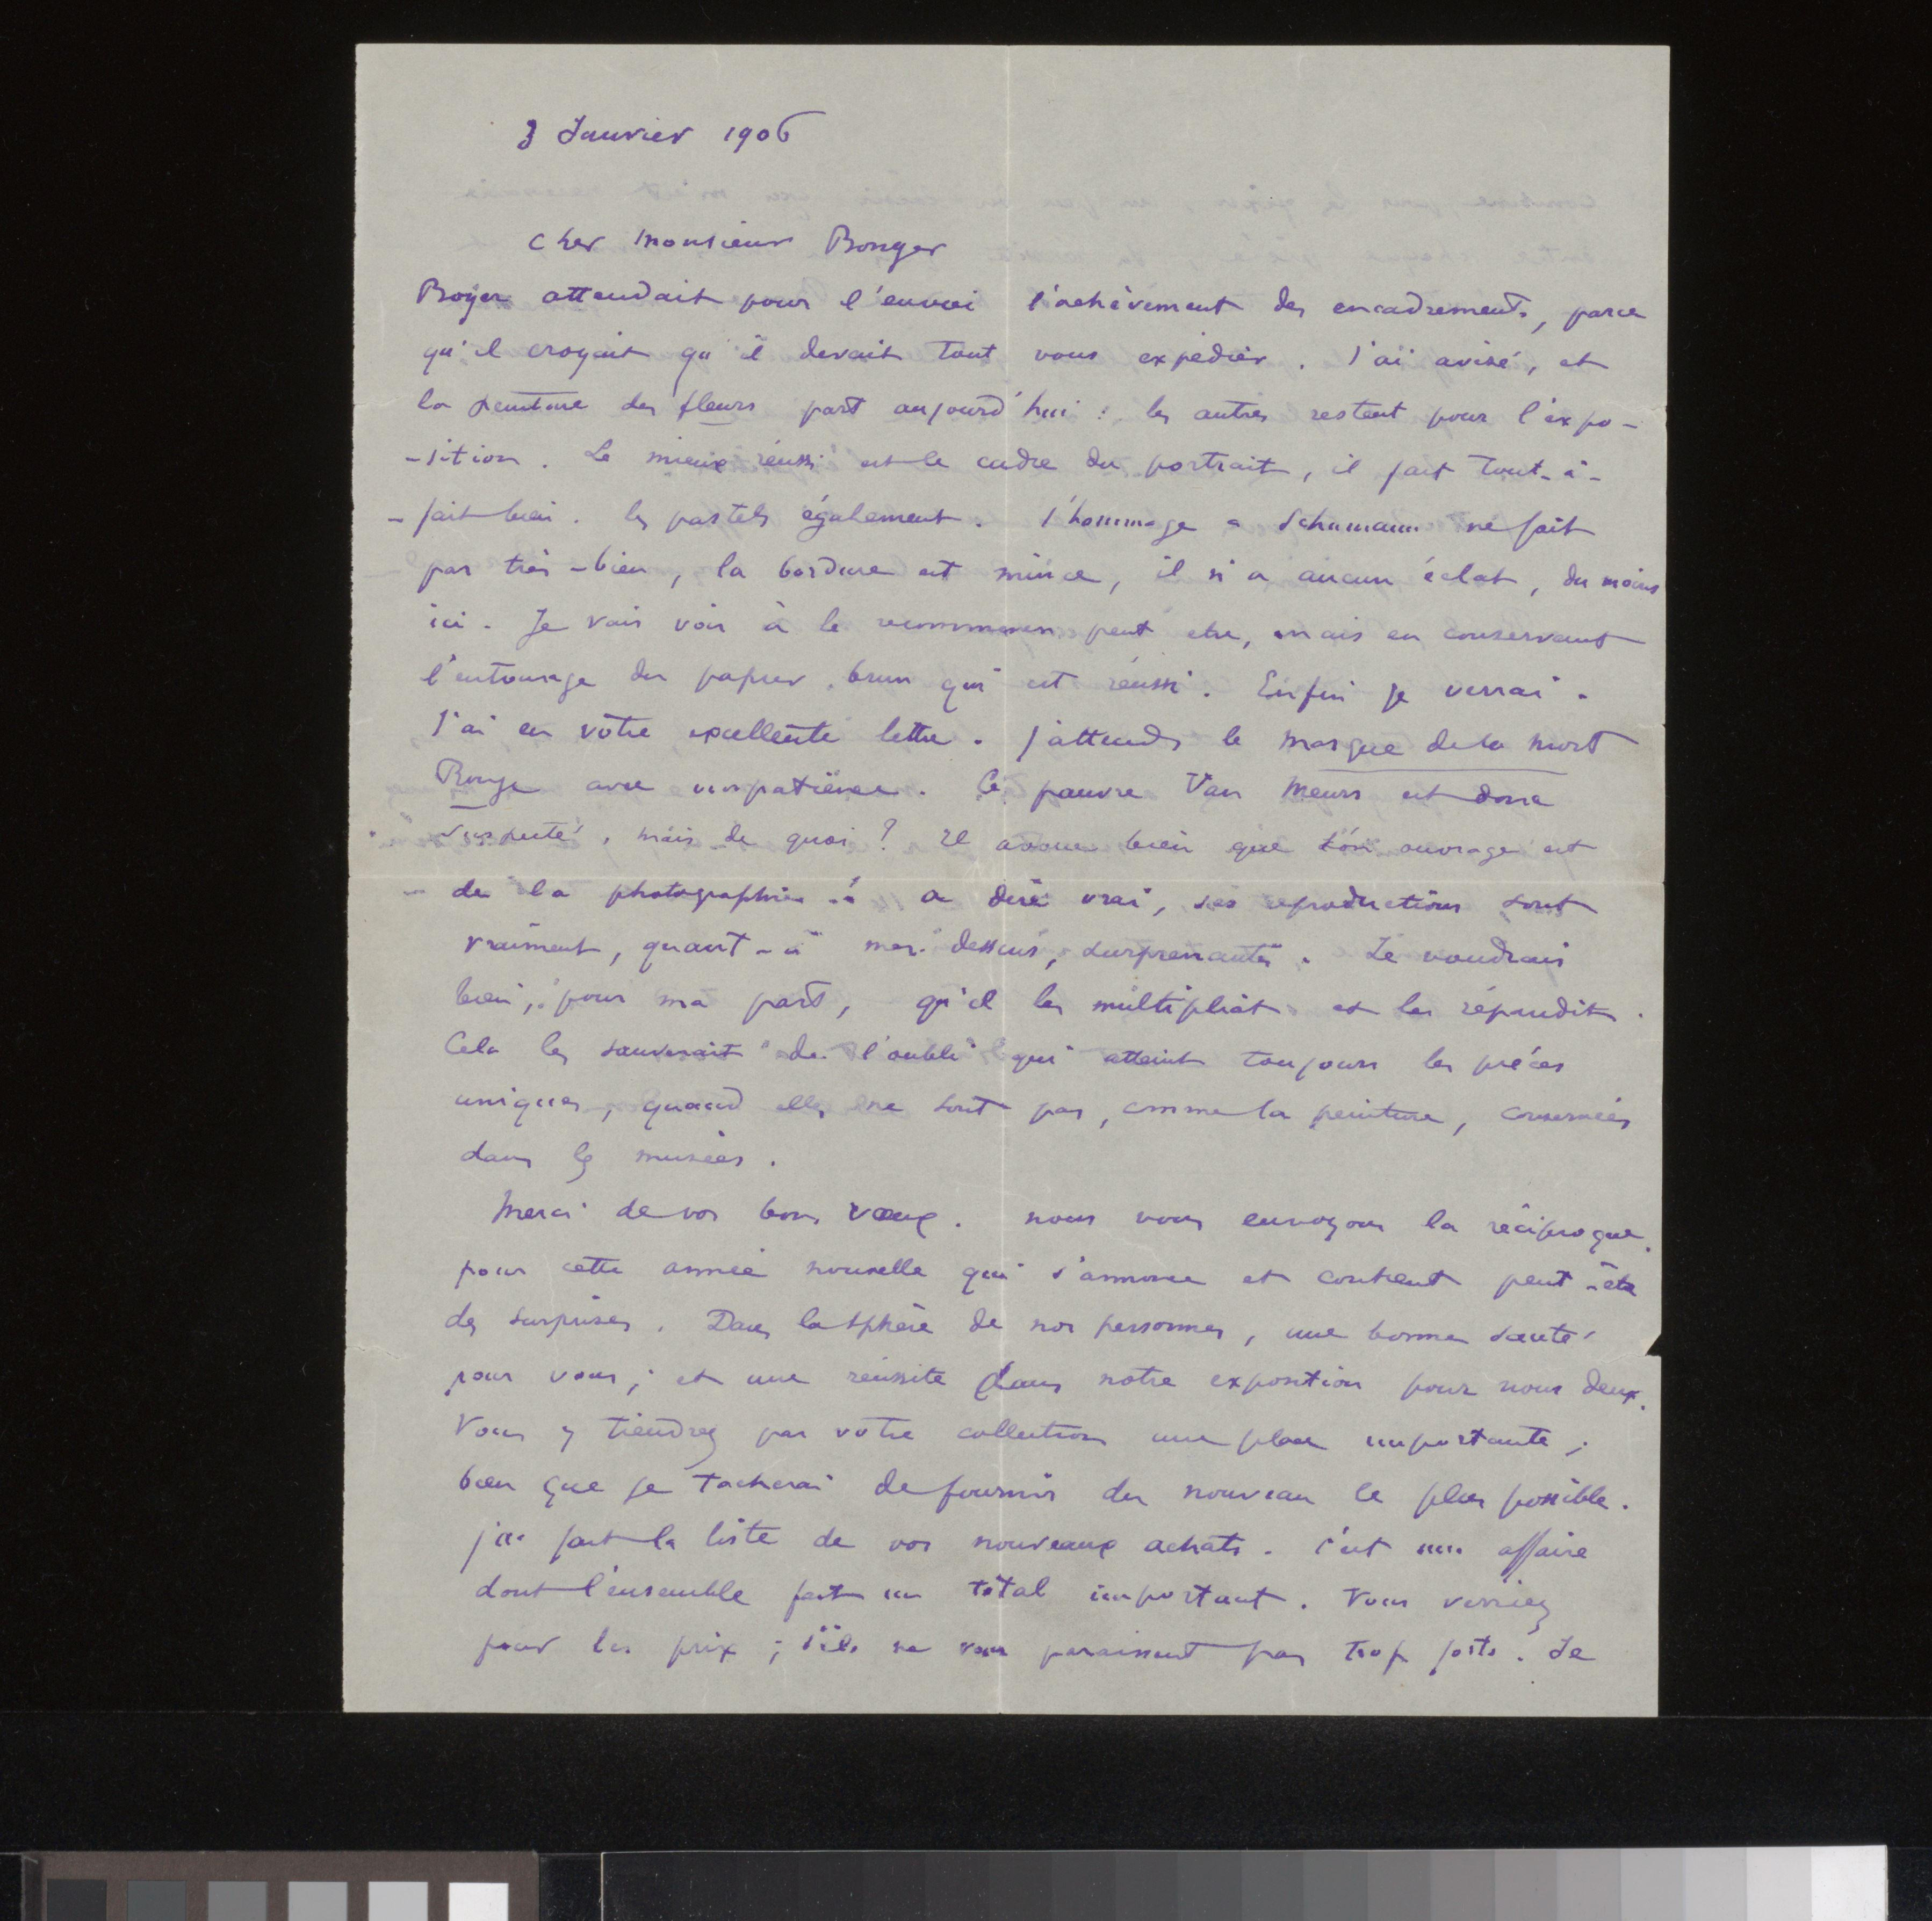 3 Janvier 1906
Cher Monsieur Bonger
Boyer attendait pour l'envoi l'achèvement des encadrements, parce
qu'il croyait qu'il devait tout vous expédier. J'ai avisé, et
la peinture des fleurs part aujourd'hui : les autres restent pour l'expo-
-sition. Le mieux réussi est le cadre du portrait, il fait tout-à-
-fait bien. les pastels également. l'hommage a Schumann ne fait
pas très-bien, la bordure est mince, il n'a aucun éclat, du moins
ici. Je vais voir à le recommencer peut etre, mais en conservant
l'entourage du papier brun qui est réussi. Enfin je verrai.
J'ai eu votre excellente lettre. j'attends le masque de la mort
Rouge avec impatience. Ce pauvre Van Meurs est donc
suspecté, mais de quoi ? Il avoue bien que son ouvrage est
de la photographie. a dire vrai, ses reproductions sont
vraiment, quant-à mes dessins, surprenantes. Je voudrais
bien, pour ma part, qu'il les multipliât et les répandit.
Cela les sauverait de l'oubli qui atteint toujours les pièces
uniques, quand elles ne sont pas, comme la peinture, conservées
dans les musées.
Merci de vos bons vœux. nous vous envoyons la réciproque
pour cette année nouvelle qui s'annonce et contient peut-être
des surprises. Dans la sphère de nos personnes, une bonne santé
pour vous ; et une réussite dans notre exposition pour nous deux.
Vous y tiendrez par votre collection une place importante ;
bien que je tacherai de fournir du nouveau le plus possible.
j'ai fait la liste de vos nouveaux achats. c'est une affaire
dont l'ensemble fait un total important. Vous verriez
pour les prix ; s'ils ne vous paraissent pas trop forts. Je